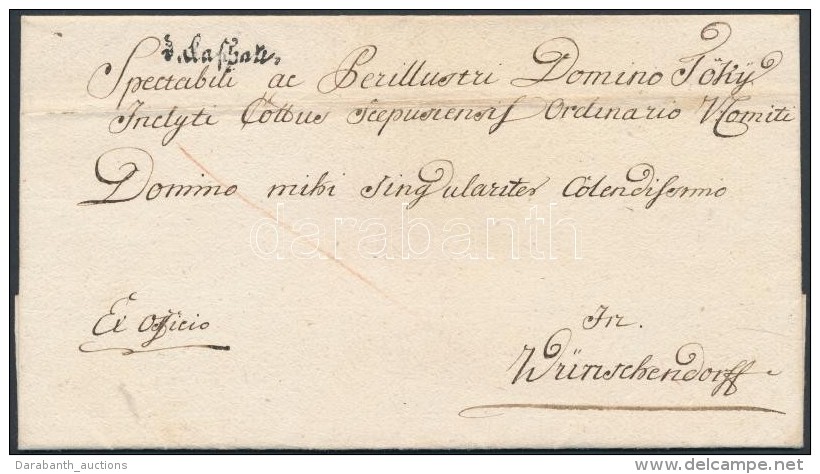 v. Caschau.
Spectabili ac Perillustri Domino Jóny
Inclyti Cottus Scepusiensis Ordinario VComiti
Domino mihi singulariter Colendissimo
Ex Officio
In.
Wünschendorff
darabanth
Darabanth_auctions
delcampe.net